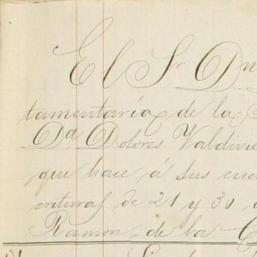 El Sr Dn
tamentaria de la
Da Dolores Valdivie
que hace á sus
crituras de 21 y 30
Ramon de la